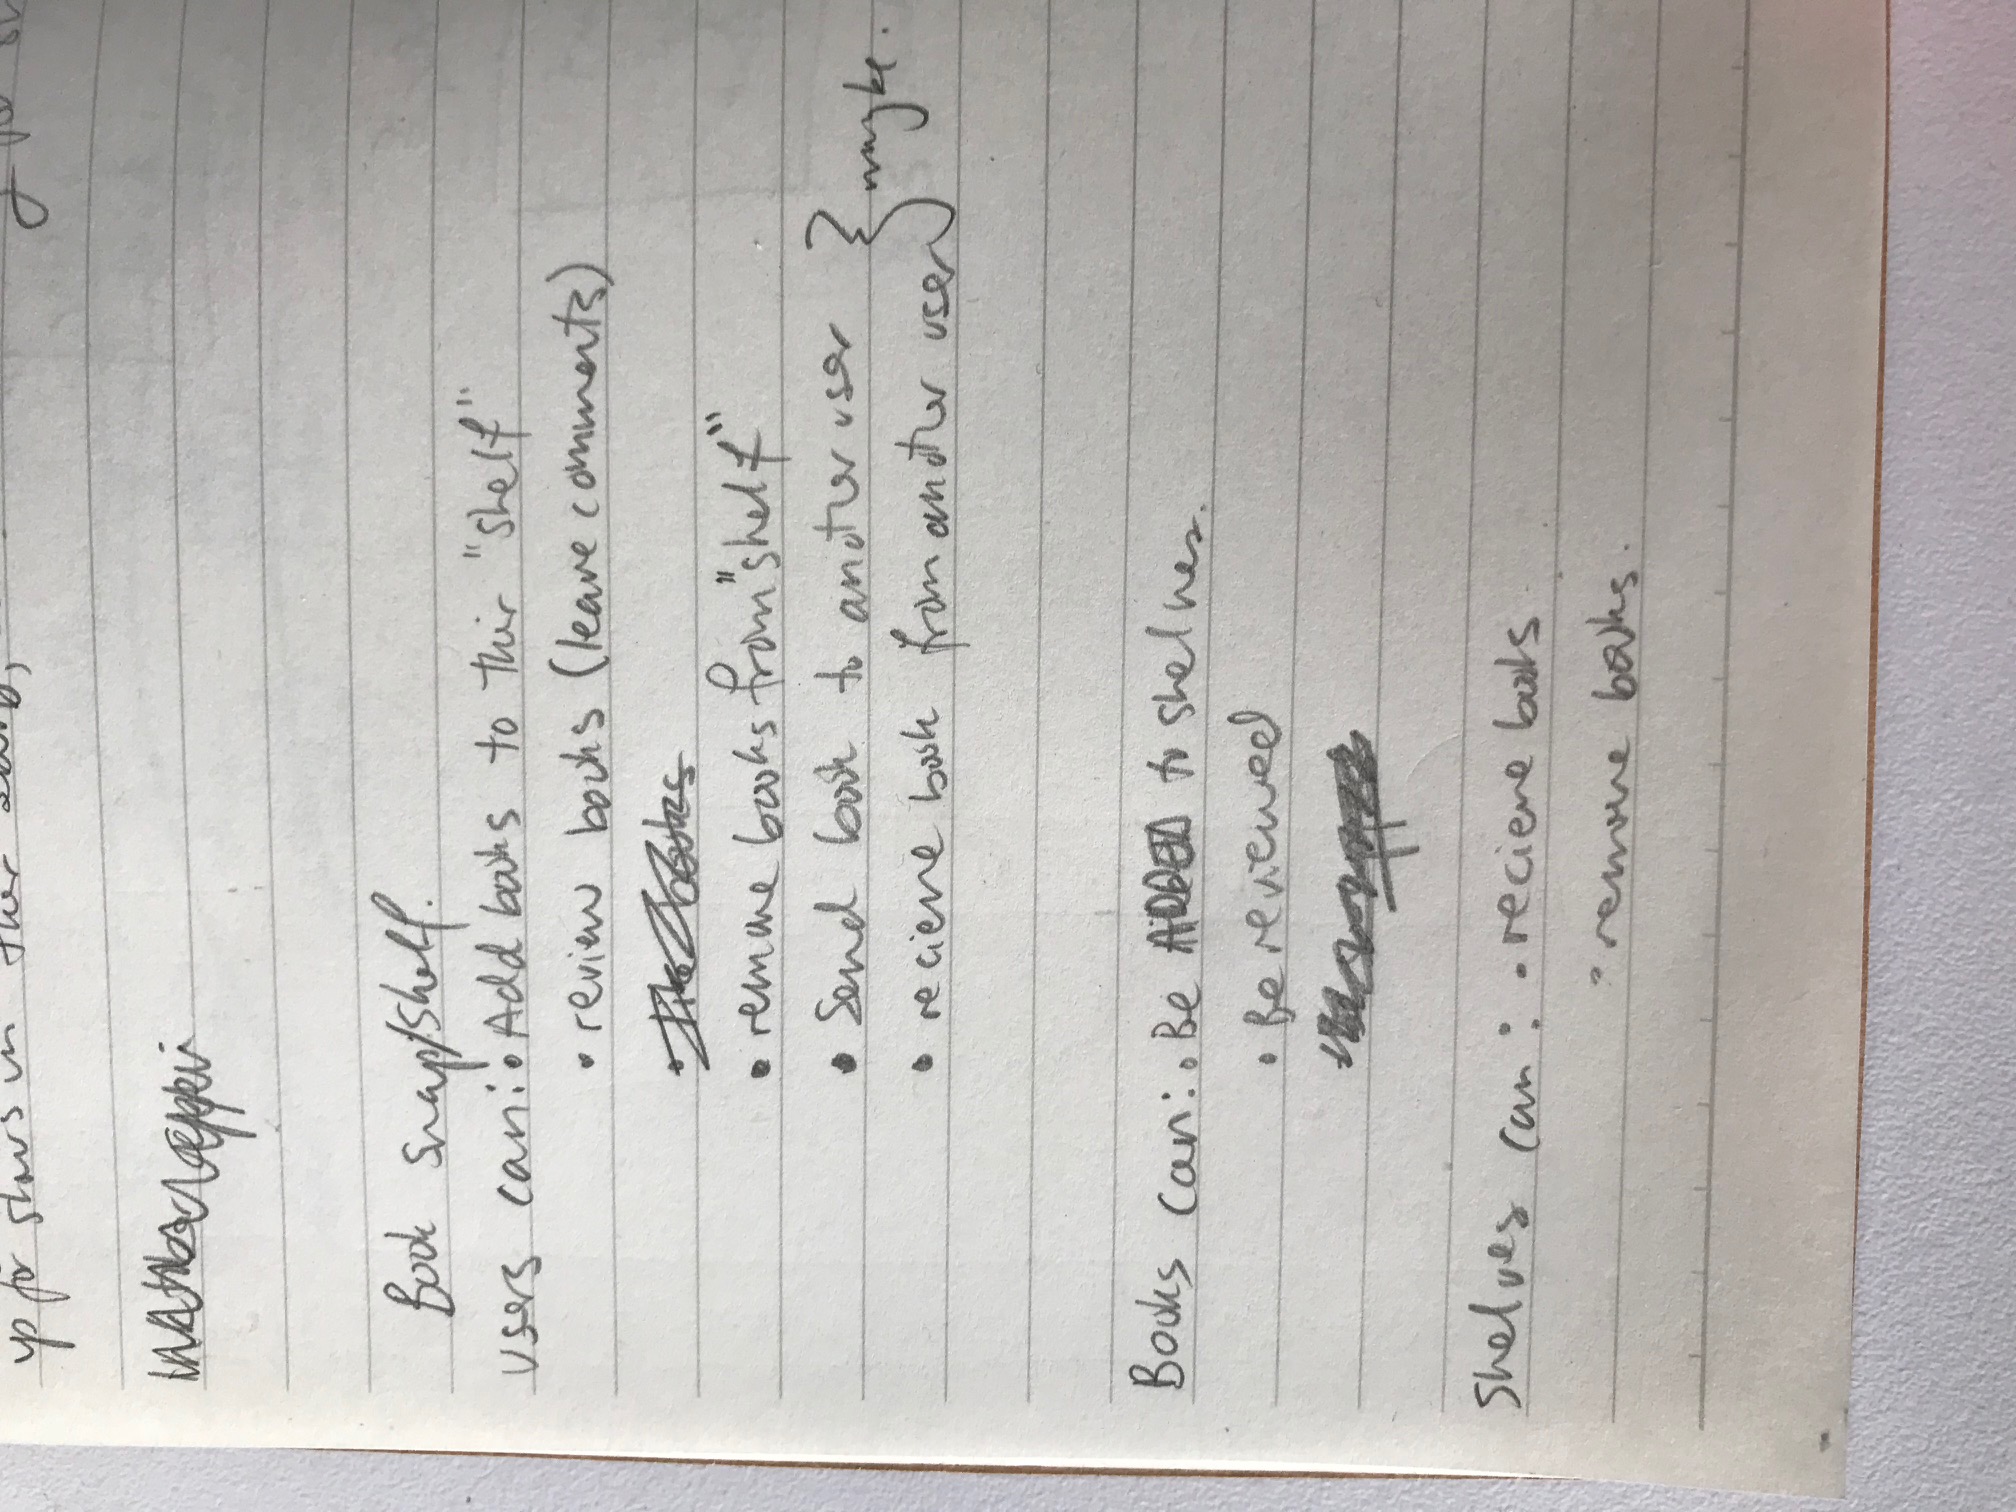 up for slots in their
Book snap/shelf.
users can: • Add books to thier "shelf"
• review books (leave comments)
• like books
• remove books from "shelf"
• Send book to another user } maybe.
• recieve book from another user
Books can: • Be ADDED to shelves.
• Be reviewed
Shelves can: • recieve books
• remove books.